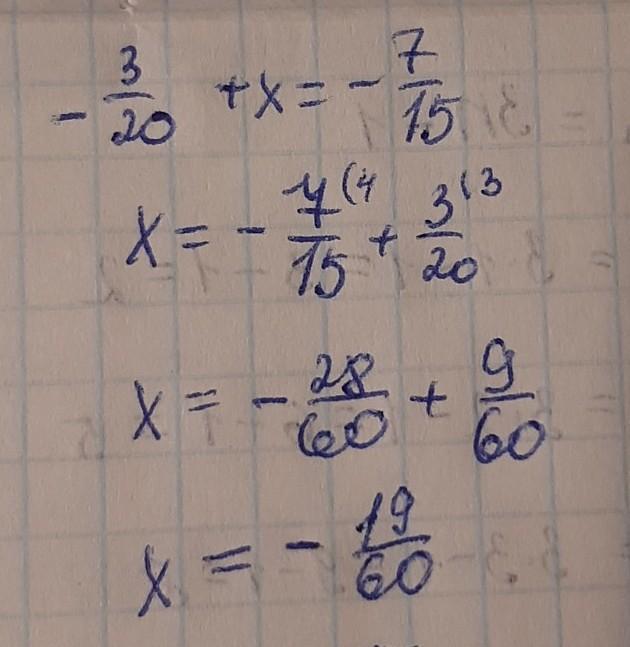 - 3/20 + x = - 7/15
x = - 7(4/15 + 3(3/20
x = - 28/60 + 9/60
x = - 19/60